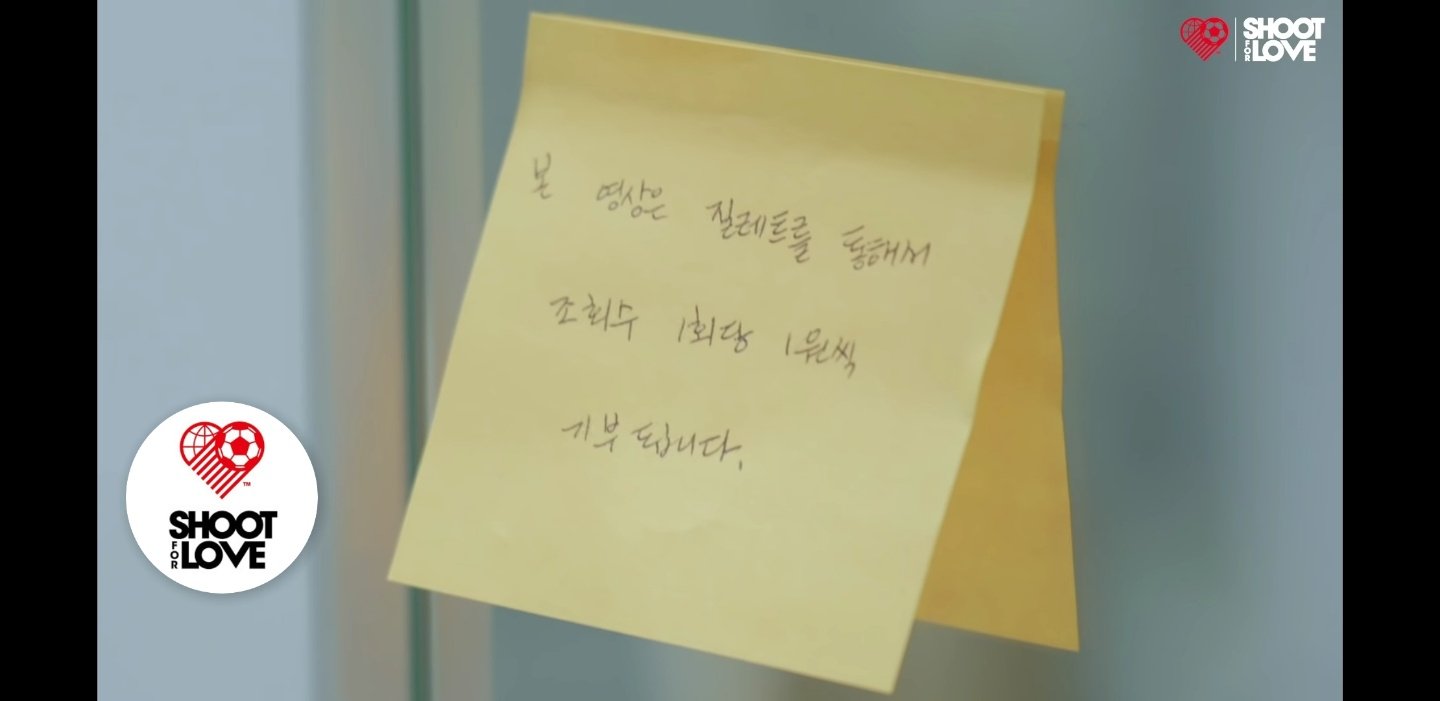 SHOOT FOR LOVE
본 영상은 질레트를 통해서
조회수 1회당 1원씩
기부 됩니다.
SHOOT
FOR LOVE
TM